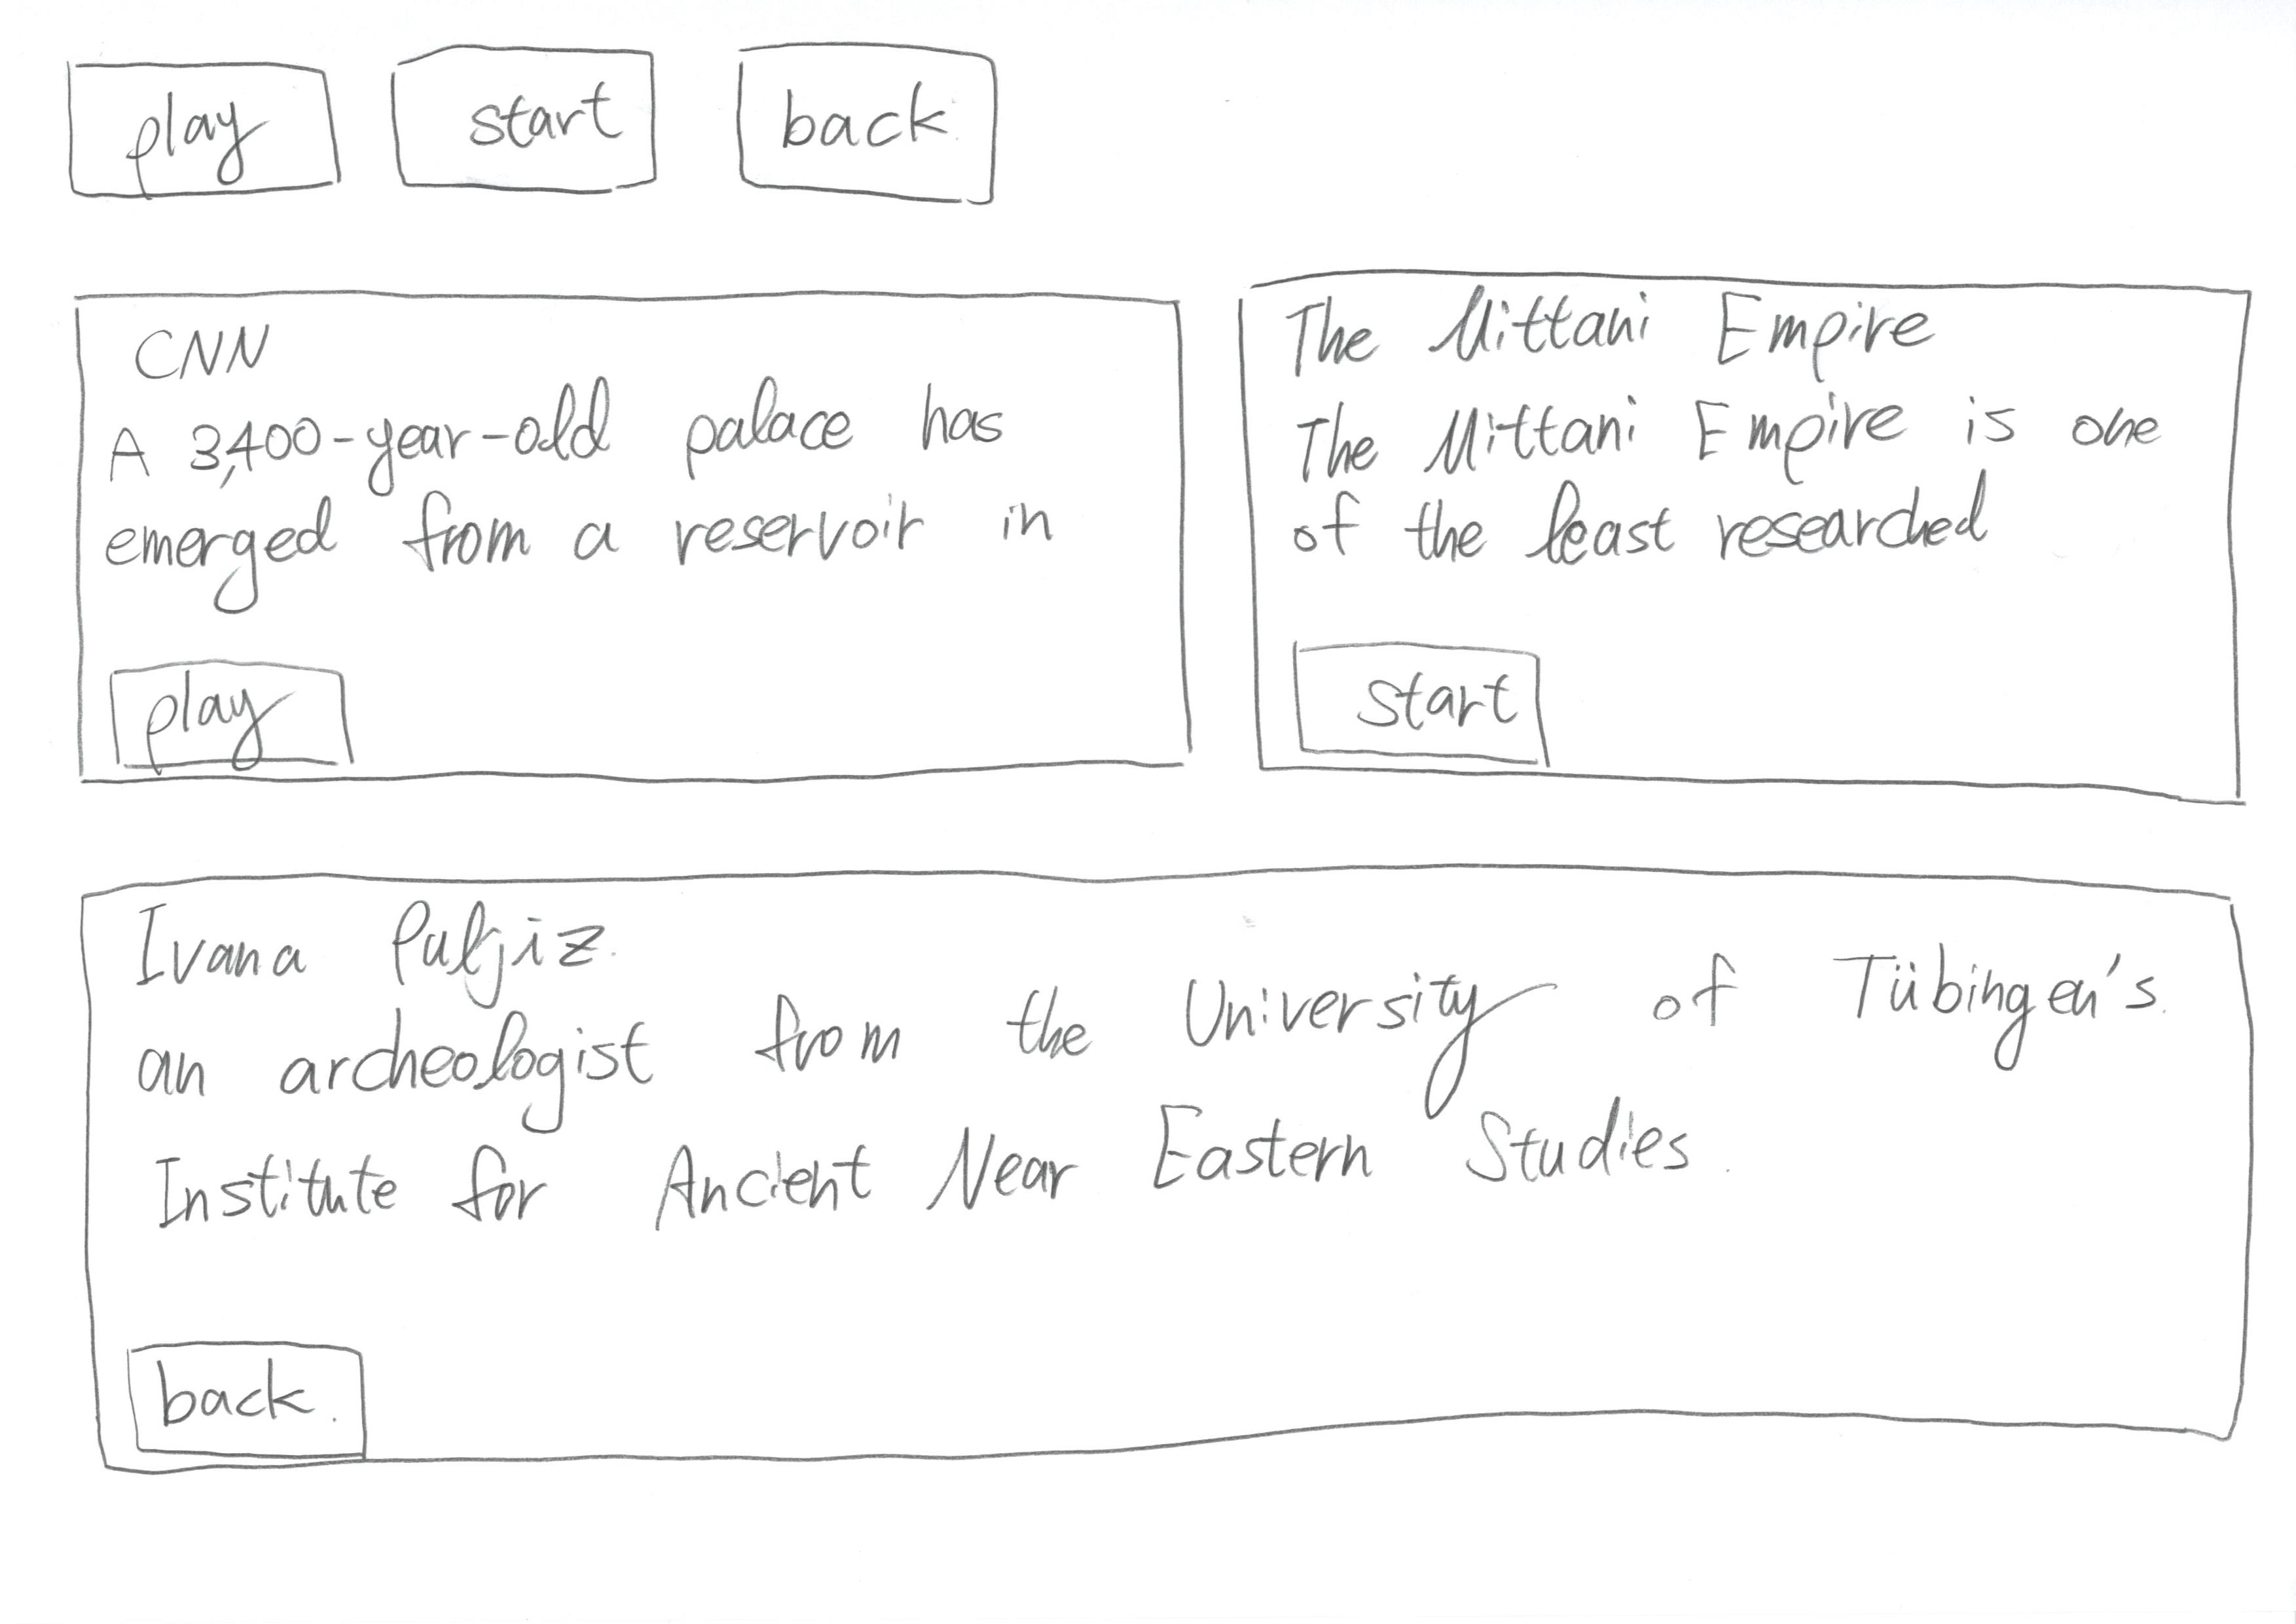 play start back
CNN
A 3,400-year-old palace has
emerged from a reservoir in
play
The Mittani Empire
The Mittani Empire is one
of the least researched
start
Ivana Puljiz
an archeologist from the University of Tübingen's
Institute for Ancient Near Eastern Studies
back